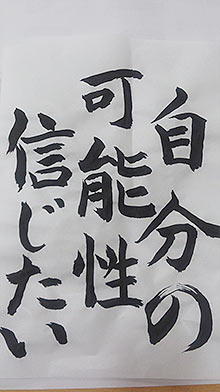 自分の
可能性
信じたい